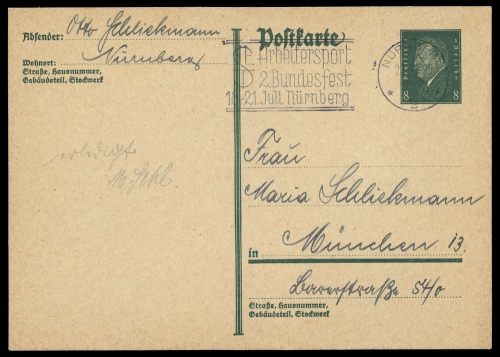 Absender: Otto Schlickmann
Wohnort: Nürnberg
Straße, Hausnummer,
Gebäudeteil, Stockwerk
Postkarte
Arbeitersport
2. Bundesfest
18.-21. Juli Nürnberg
NÜR
Deutsches Reich
8 8
erledigt
M. Schl.
Frau
Maria Schlickmann
in München 13.
Barerstraße 54/0
Straße, Hausnummer,
Gebäudeteil, Stockwerk